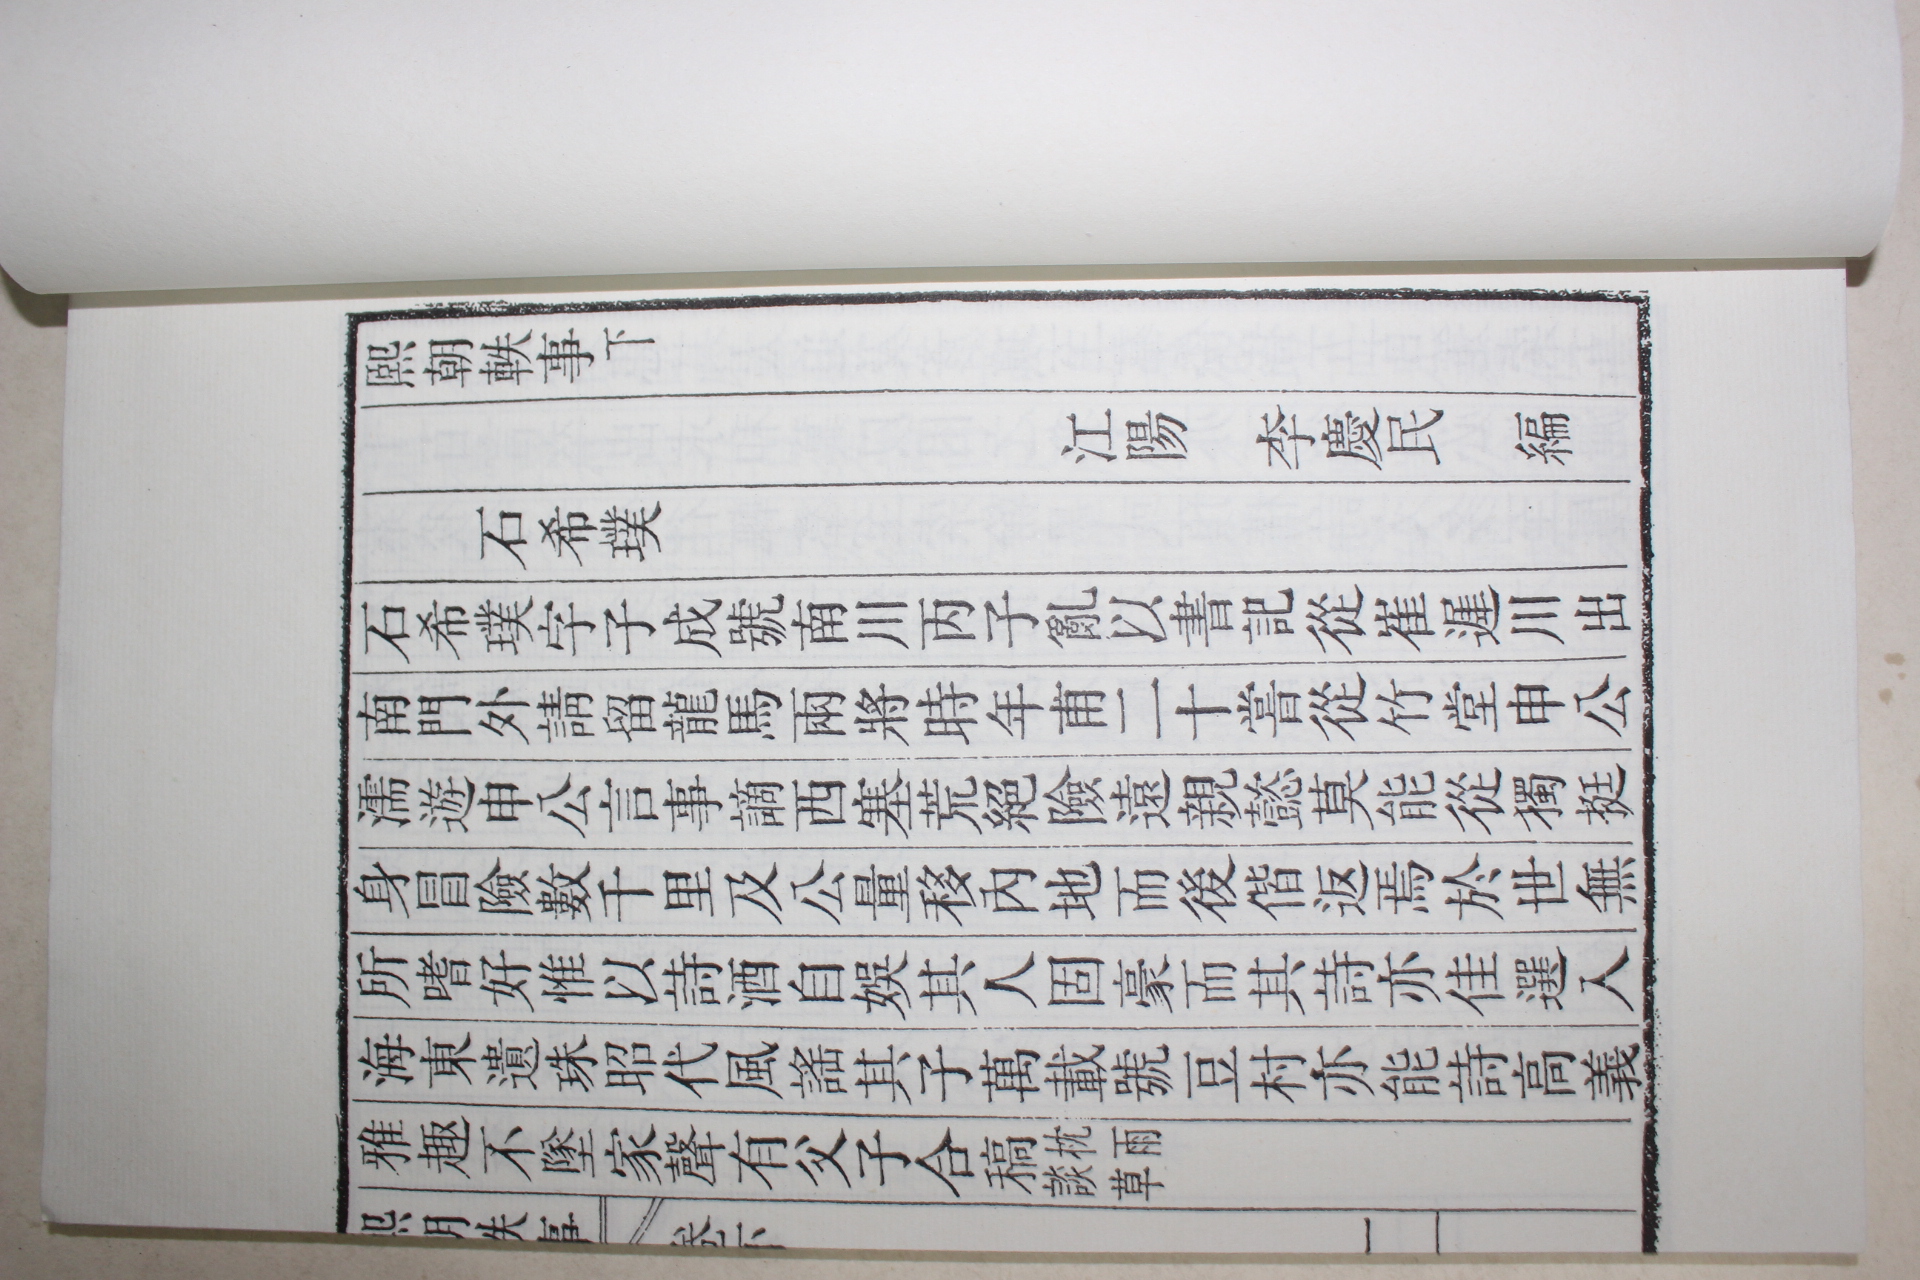 熙朝軼事下
江陽 李慶民 編
石希璞
石希璞字子成號南川丙子亂以書記從崔遲川出
南門外請留龍馬兩將時年甫二十嘗從竹堂申公
濡遊申公言事謫西塞荒絕險遠親懿莫能從獨挺
身冒險數千里及公量移內地而後偕返焉於世無
所嗜好惟以詩酒自娛其人固豪而其詩亦佳選入
海東遺珠昭代風謠其子萬載號豆村亦能詩高義
雅趣不墜家聲有父子合稿枕雨
談草